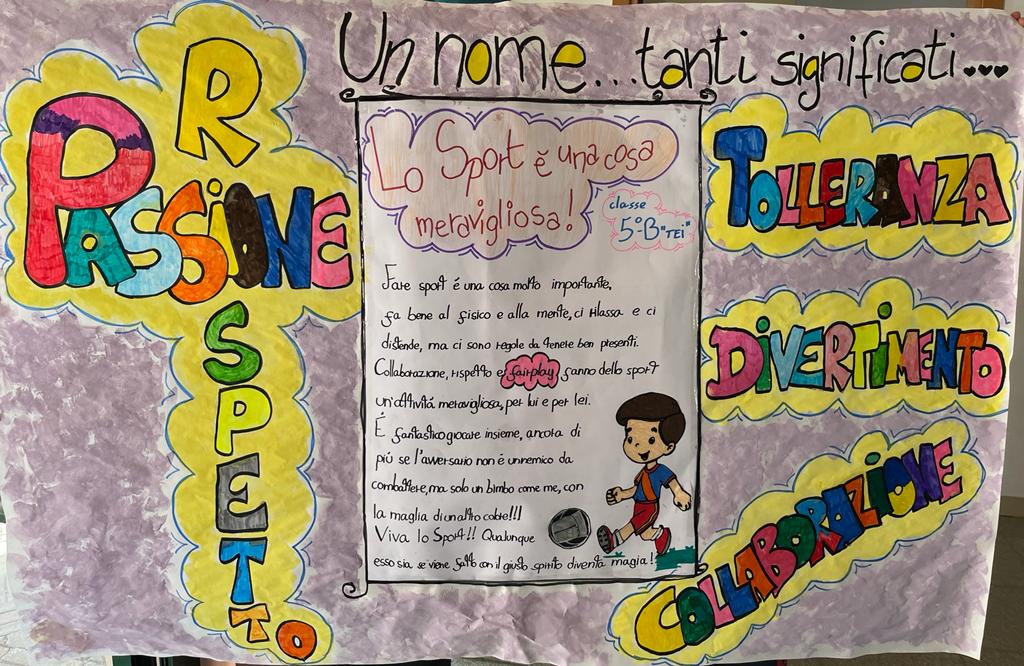 Un nome...tanti significati...
PASSIONE
RISPETTO
Lo Sport è una cosa
meravigliosa!
classe
5°B "TEI"
Fare sport é una cosa molto importante,
fa bene al fisico e alla mente, ci rilassa e ci
distende, ma ci sono regole da tenere ben presenti.
Collaborazione, rispetto e fairplay fanno dello sport
un'attivitá meravigliosa, per lui e per lei.
É fantastico giocare insieme, ancora di
piú se l'avversario non é un nemico da
combattere, ma solo un bimbo come me, con
la maglia di un altro colore!!!
Viva lo Sport!! Qualunque
esso sia se viene fatto con il giusto spirito diventa magia!
TOLLERANZA
DIVERTIMENTO
COLLABORAZIONE